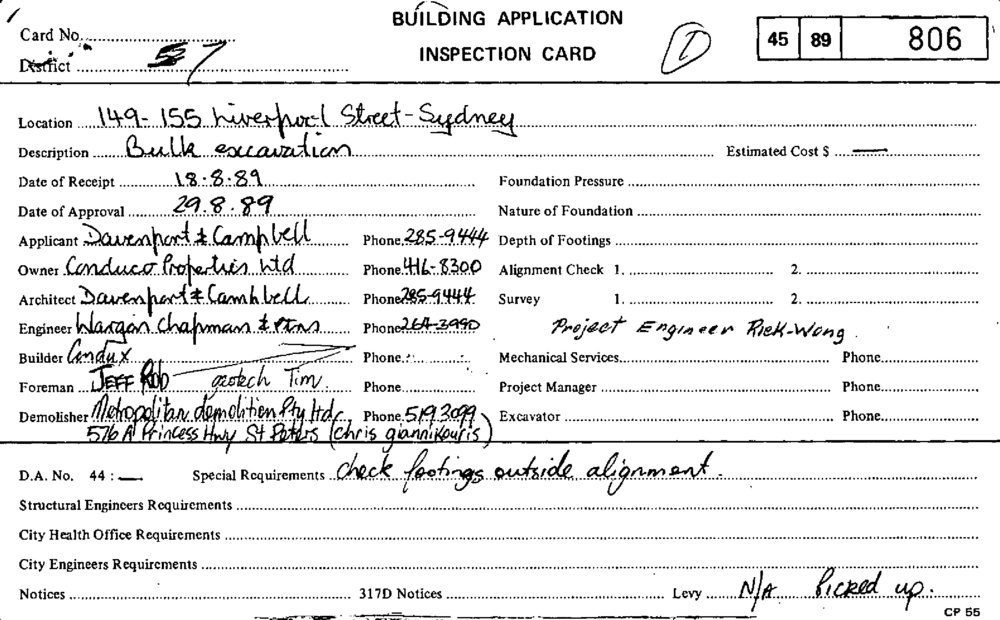 BUILDING APPLICATION
INSPECTION CARD
Card No.
District 57
D
45 89 806
Location 149-155 Liverpool Street-Sydney
Description Bulk excavation Estimated Cost $ —
Date of Receipt 18.8.89 Foundation Pressure
Date of Approval 29.8.89 Nature of Foundation
Applicant Davenport & Campbell Phone 285-9444 Depth of Footings
Owner Conduco Properties Ltd Phone 416-8300 Alignment Check 1. 2.
Architect Davenport & Campbell Phone 285-9444 Survey 1. 2.
Engineer Wargon Chapman & Ptns Phone 264-3990 Project Engineer Rick-Wong.
Builder Condux Phone Mechanical Services Phone
Foreman JEFF ROD geotech Tim. Phone Project Manager Phone
Demolisher Metropolitan demolition Pty Ltd Phone 519 3099 Excavator Phone
576A Princess Hwy St Peters (chris giannikouris)
D.A. No. 44 : — Special Requirements Check footings outside alignment.
Structural Engineers Requirements
City Health Office Requirements
City Engineers Requirements
Notices 317D Notices Levy N/A Picked up.
CP 55